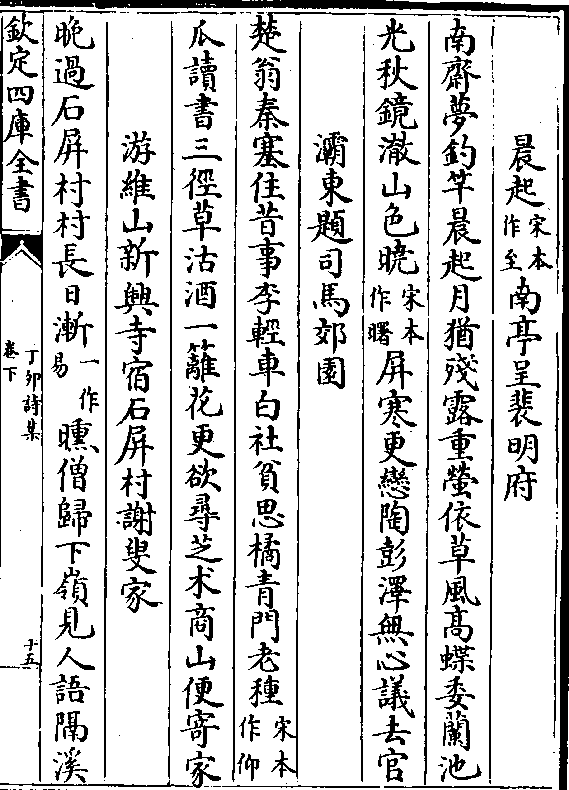 晨起宋本作至南亭呈裴明府
南齋夢釣竿晨起月猶殘露重螢依草風髙蝶委蘭池
光秋鏡澈山色曉宋本作曙屏寒更戀陶彭澤無心議去官
灞東題司馬郊園
楚翁秦塞住昔事李輕車白社貧思橘青門老種宋本作仰
瓜讀書三徑草沽酒一籬花更欲尋芝术商山便寄家
游維山新興寺宿石屏村謝叟家
晩過石屏村村長日漸一作易曛僧歸下嶺見人語隔溪
欽定四庫全書
丁卯詩集
卷下
十五